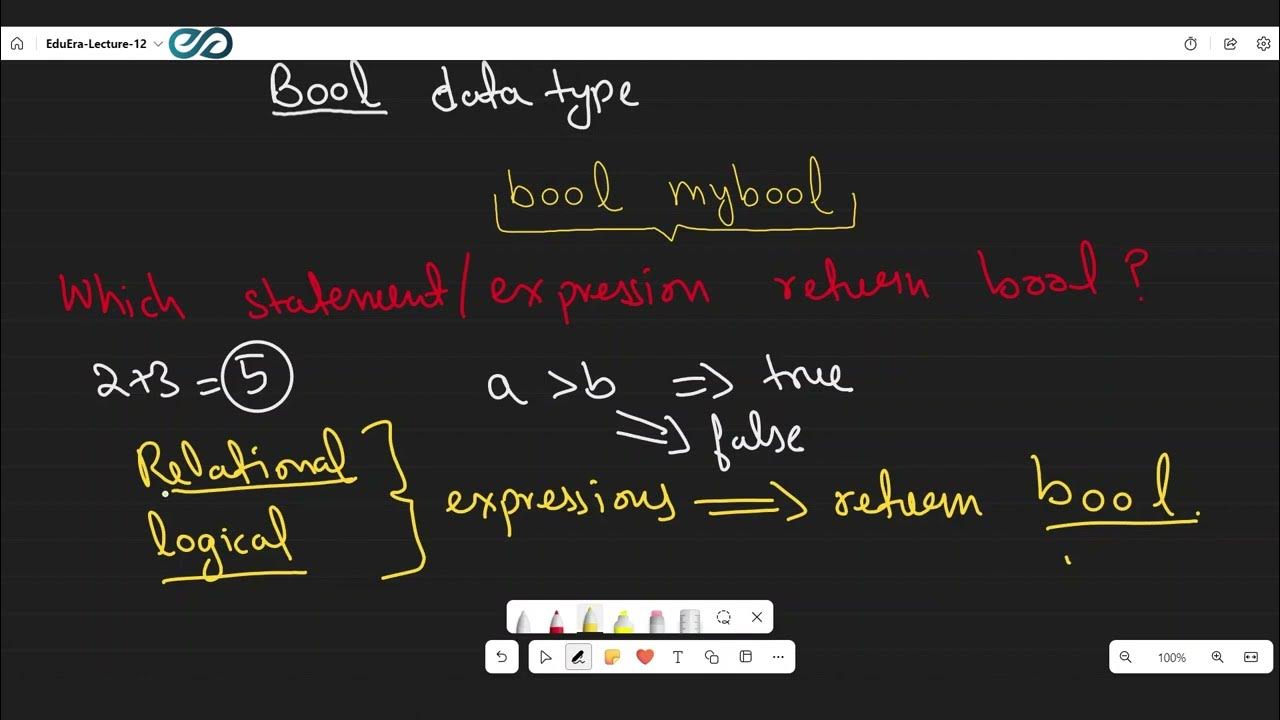 EduEra-Lecture-12
Bool data type
bool mybool
Which statement/expression return bool?
2+3 = 5 a >b => true
=> false
Relational
logical } expressions => return bool.
100%